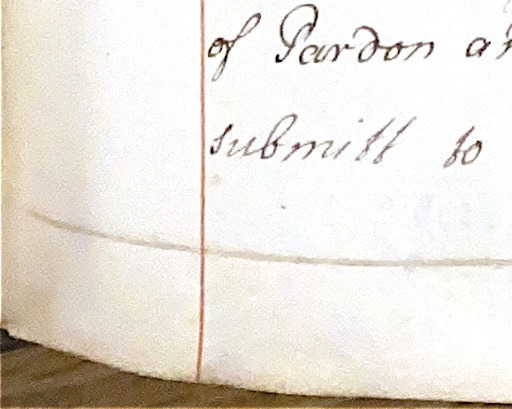 of Pardon a
submitt to